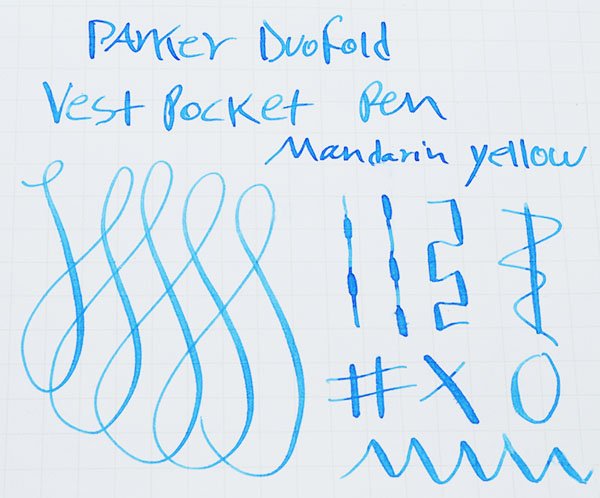 Parker Duofold
Vest Pocket Pen
Mandarin yellow